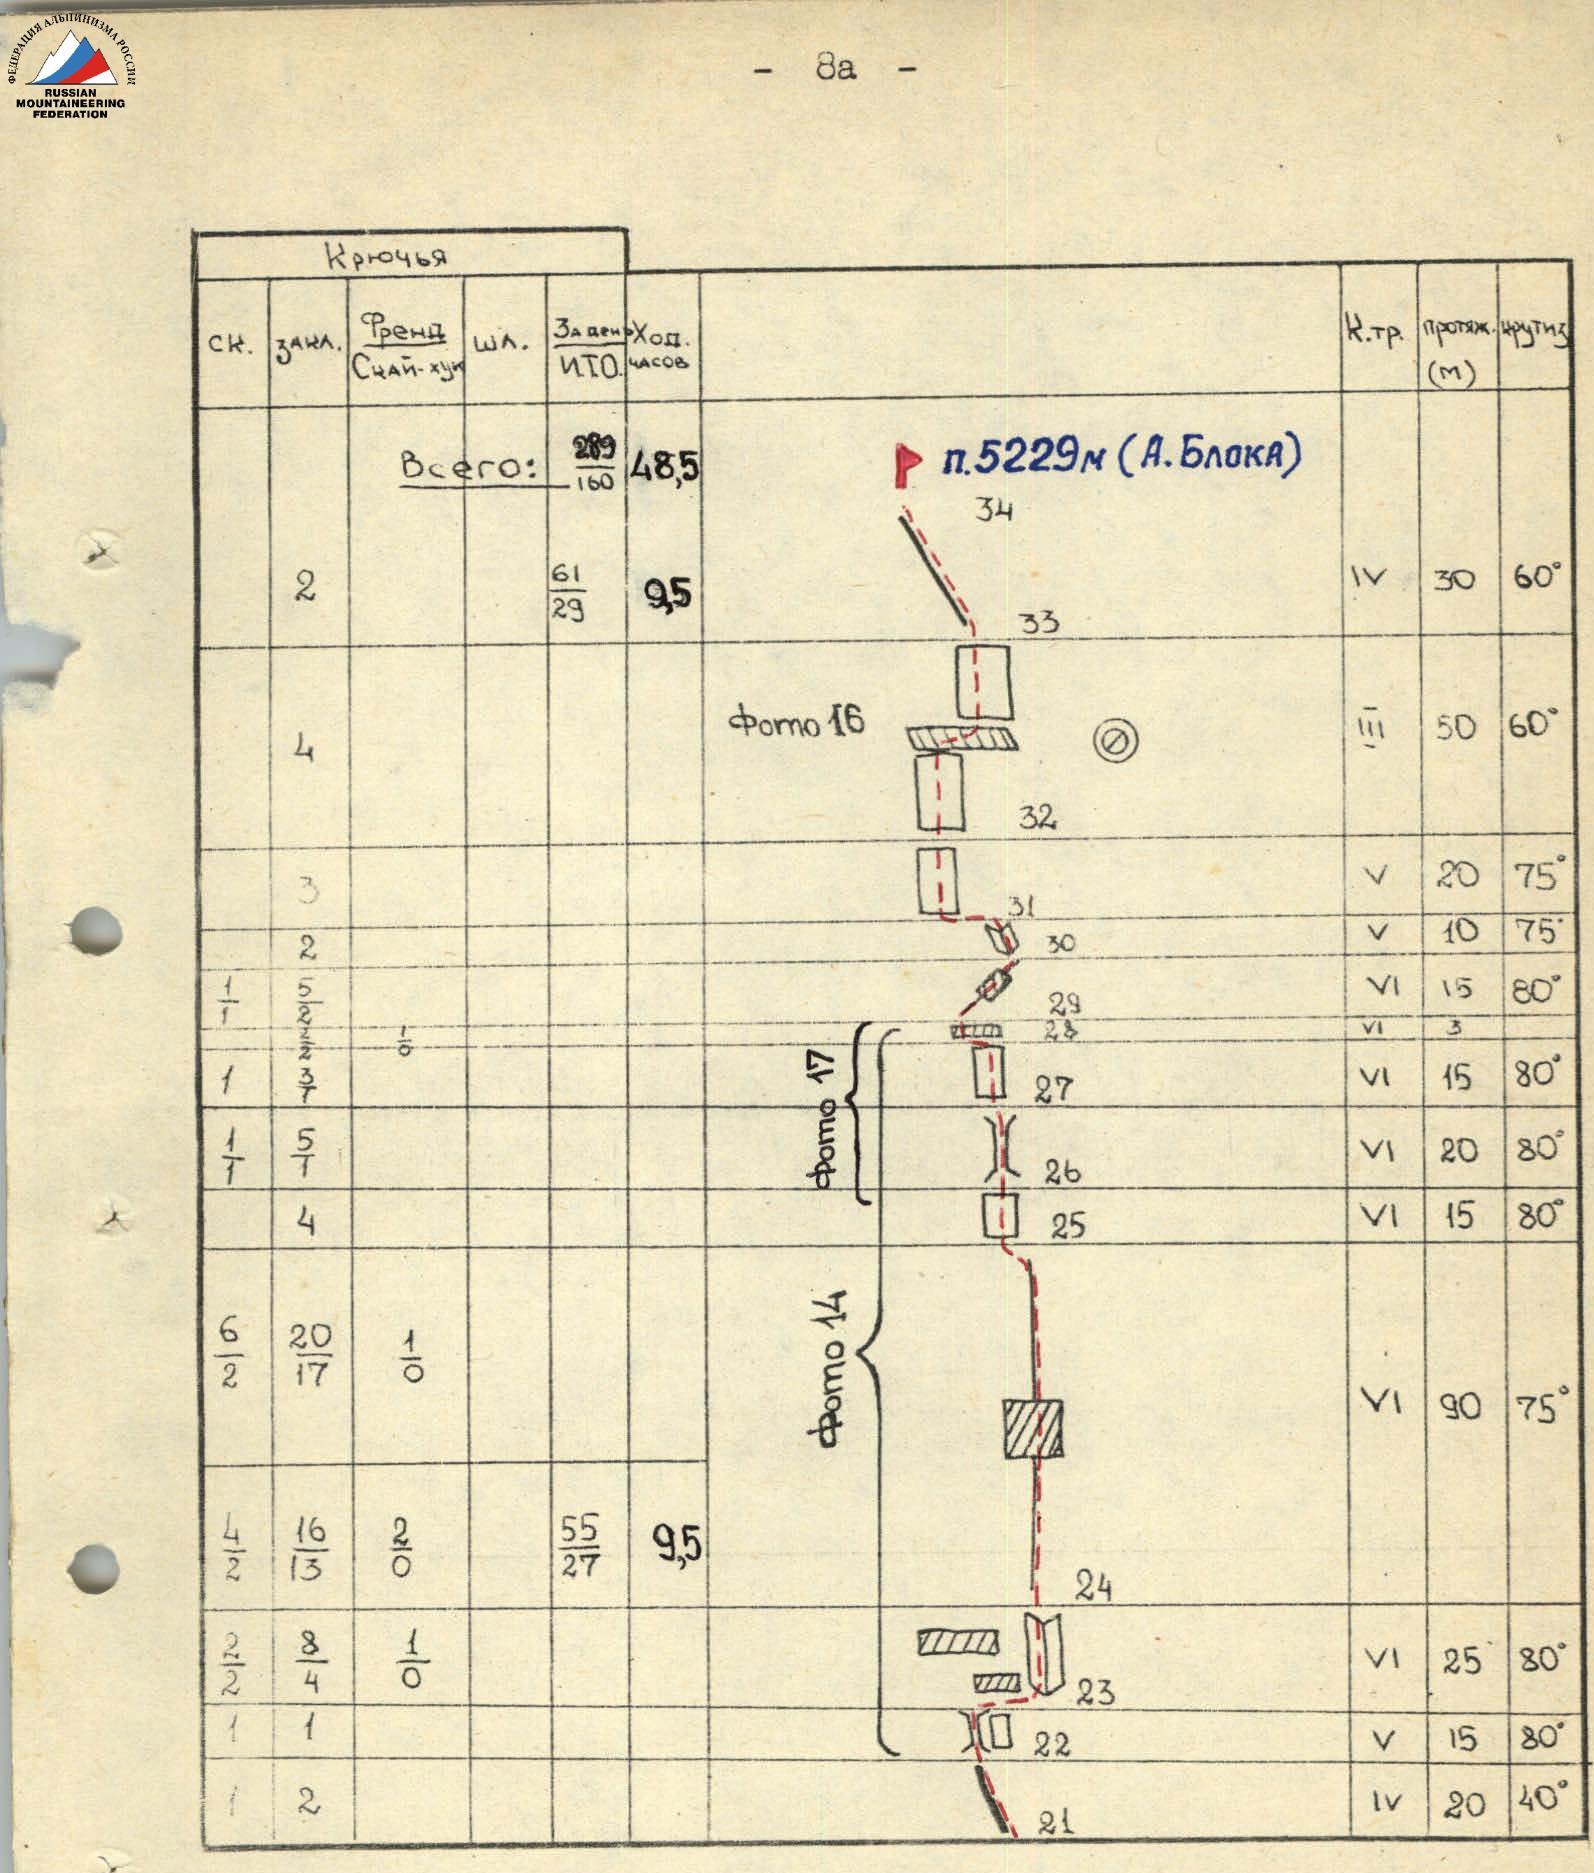 ФЕДЕРАЦИЯ АЛЬПИНИЗМА РОССИИ
RUSSIAN
MOUNTAINEERING
FEDERATION
- 8а -
Крючья
ск. закл. Френд/Скай-хук шл. За день/ИТО. Ход. часов К.тр. протяж. (м) крутиз
Всего: 289/160 48,5 п.5229м (А.Блока)
34
2 61/29 9,5 IV 30 60°
33
4 Фото 16 III 50 60°
32
3 V 20 75°
31
2 30 V 10 75°
1/1 5/2 29 VI 15 80°
2/2 1/0 28 VI 3
1 3/1 27 VI 15 80°
Фото 17
1/1 5/1 26 VI 20 80°
4 25 VI 15 80°
6/2 20/17 1/0 VI 90 75°
Фото 14
4/2 16/13 2/0 55/27 9,5
24
2/2 8/4 1/0 VI 25 80°
23
1 1 22 V 15 80°
1 2 IV 20 40°
21